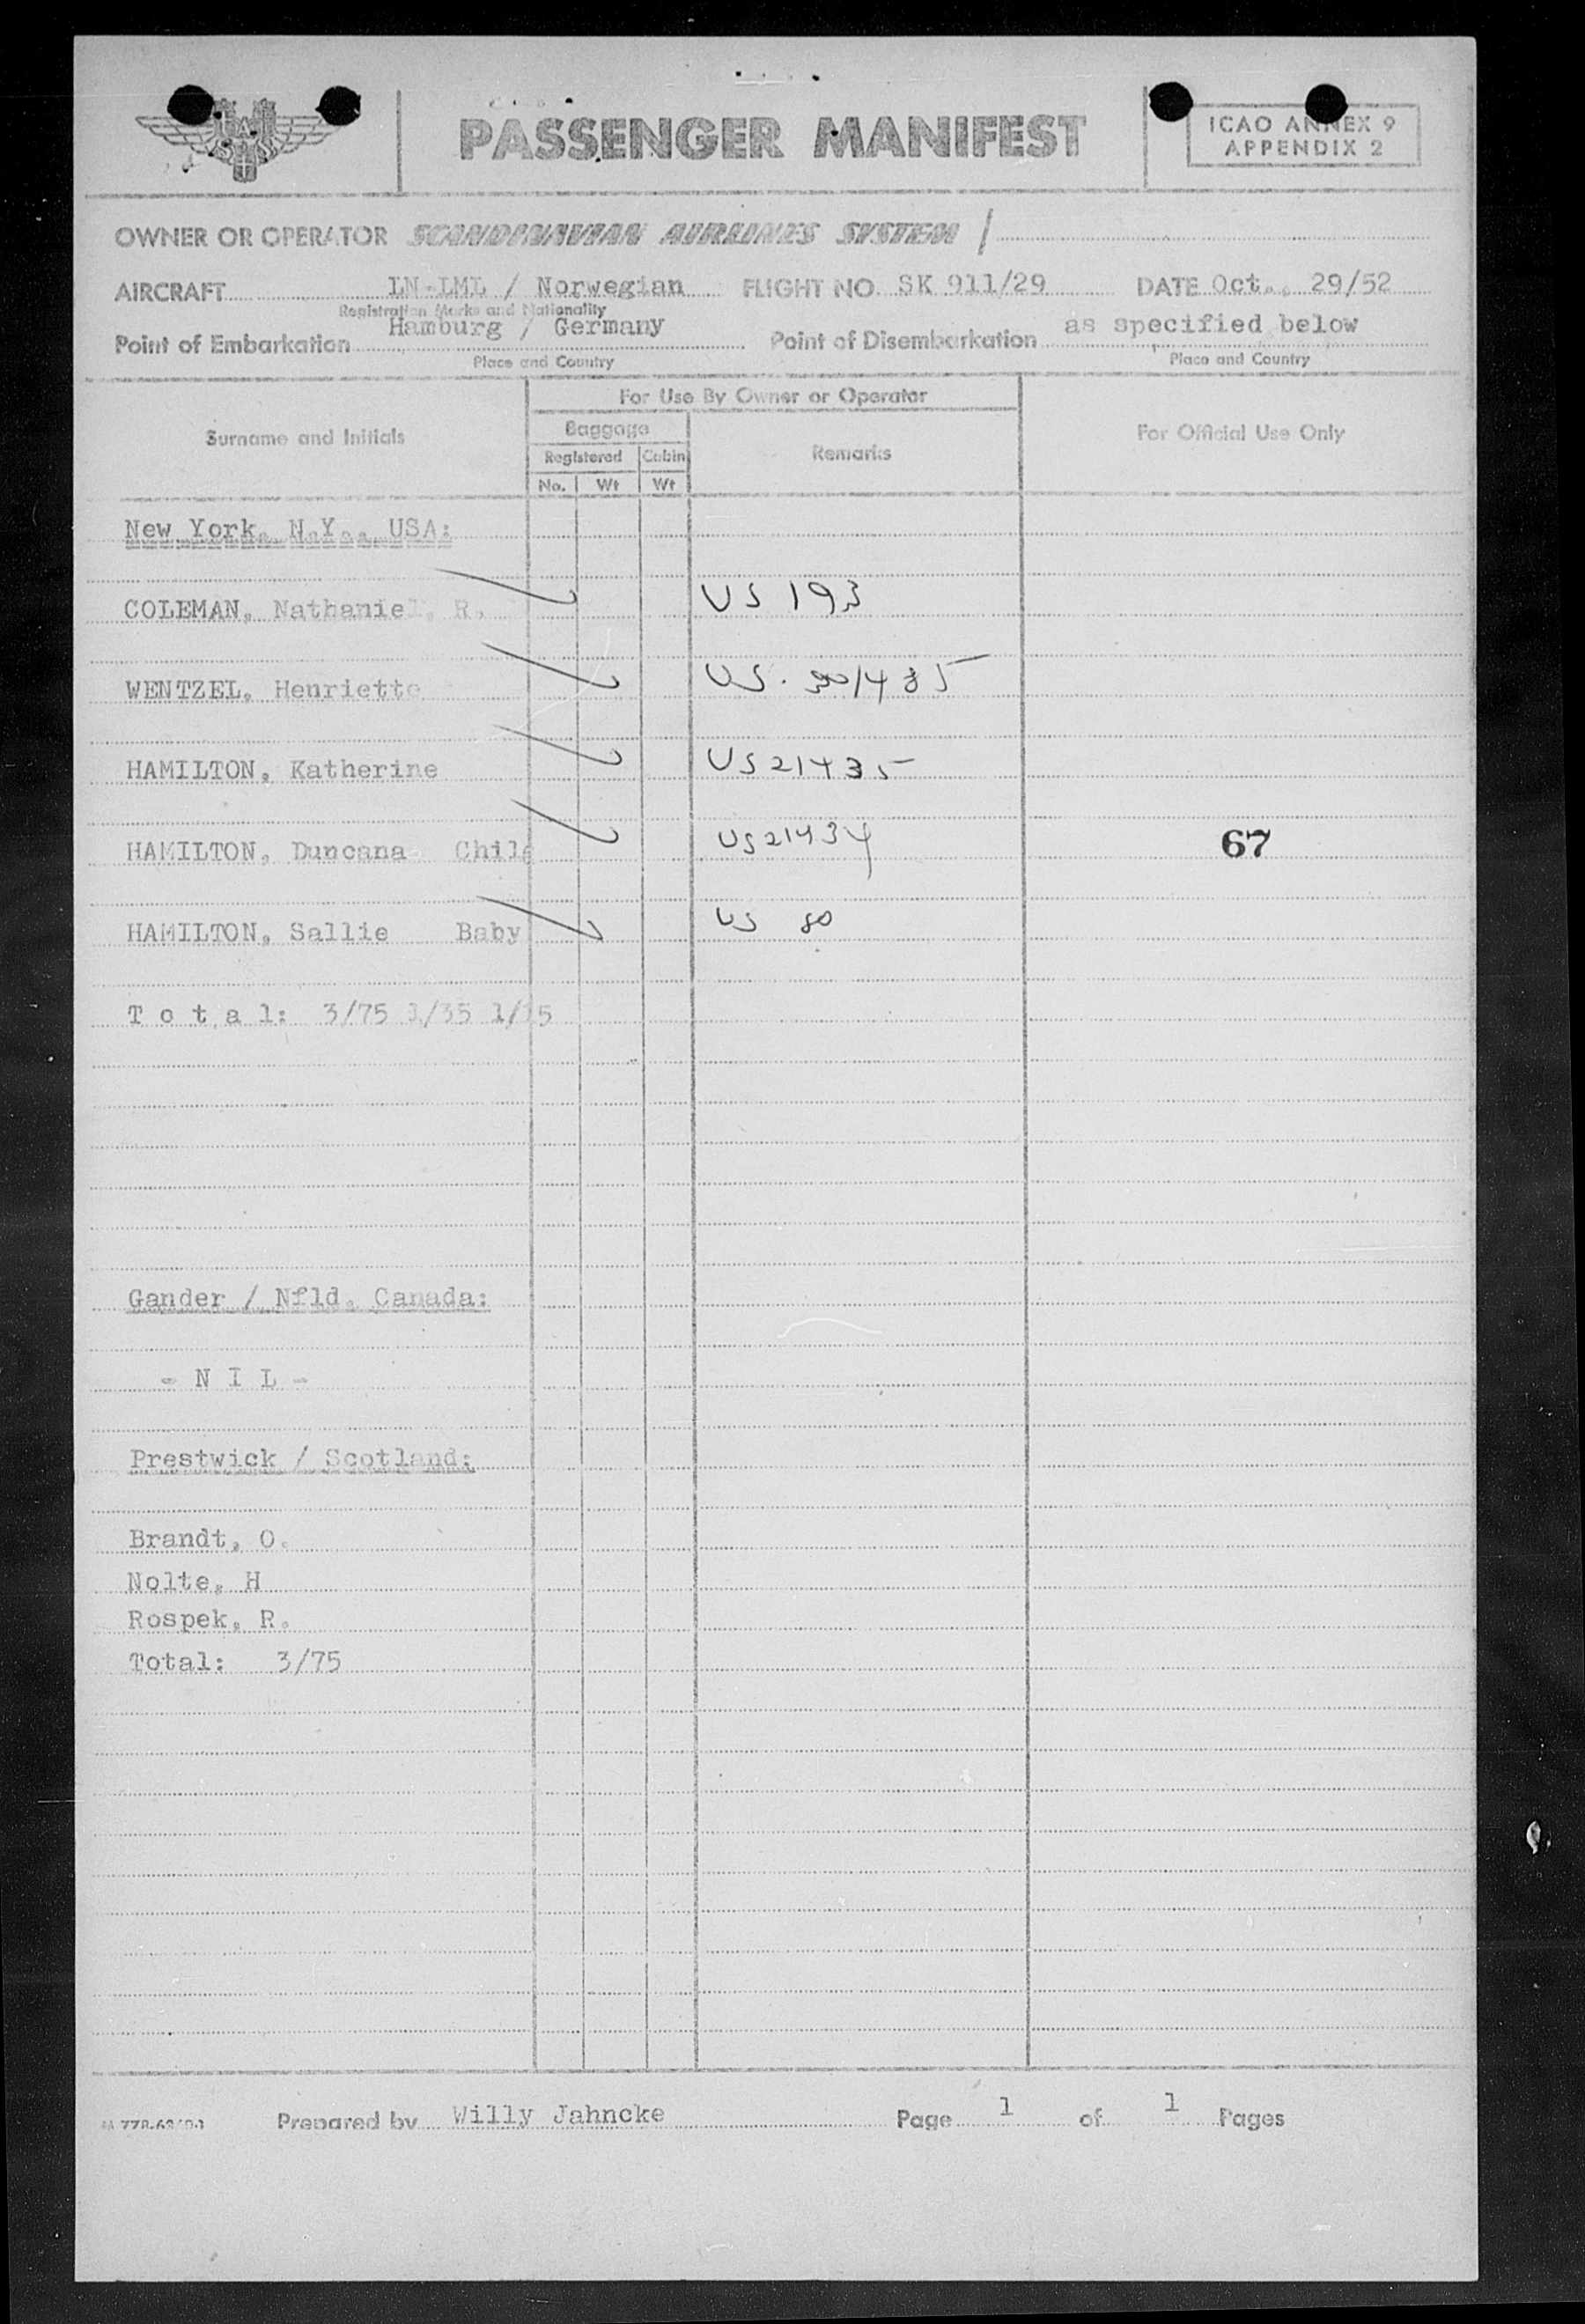 PASSENGER MANIFEST
ICAO ANNEX 9
APPENDIX 2
OWNER OR OPERATOR SCANDINAVIAN AIRLINES SYSTEM /
AIRCRAFT LN-LML / Norwegian FLIGHT NO. SK 911/29 DATE Oct., 29/52
Registration Marks and Nationality
Point of Embarkation Hamburg / Germany Point of Disembarkation as specified below
Place and Country Place and Country
For Use By Owner or Operator
Surname and Initials Baggage Remarks For Official Use Only
Registered Cabin
No. Wt Wt
New York, N.Y., USA:
COLEMAN, Nathaniel, R. US 193
WENTZEL, Henriette US.
HAMILTON, Katherine US21435
HAMILTON, Duncana Child US21434 67
HAMILTON, Sallie Baby US 80
T o t a l: 3/75 1/35 1/15
Gander / Nfld. Canada:
- N I L -
Prestwick / Scotland:
Brandt, O.
Nolte, H
Rospek, R.
Total: 3/75
Prepared by Willy Jahncke Page 1 of 1 Pages